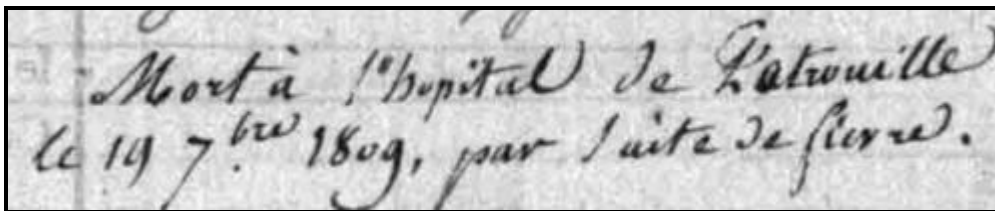 Mort à l'hopital de Patrouille
le 19 7.bre 1809, par suite de fievre.